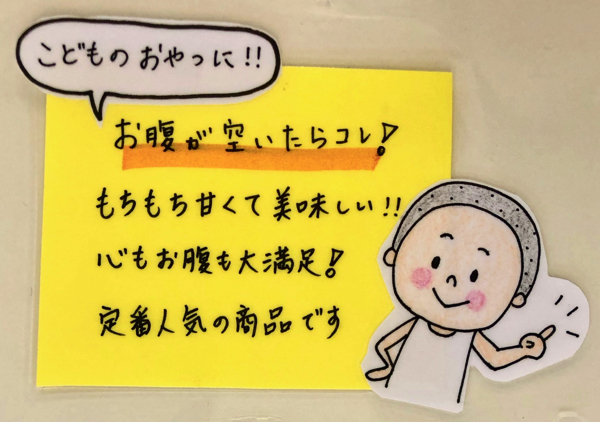 こどものおやつに!!
お腹が空いたらコレ!
もちもち甘くて美味しい!!
心もお腹も大満足!
定番人気の商品です